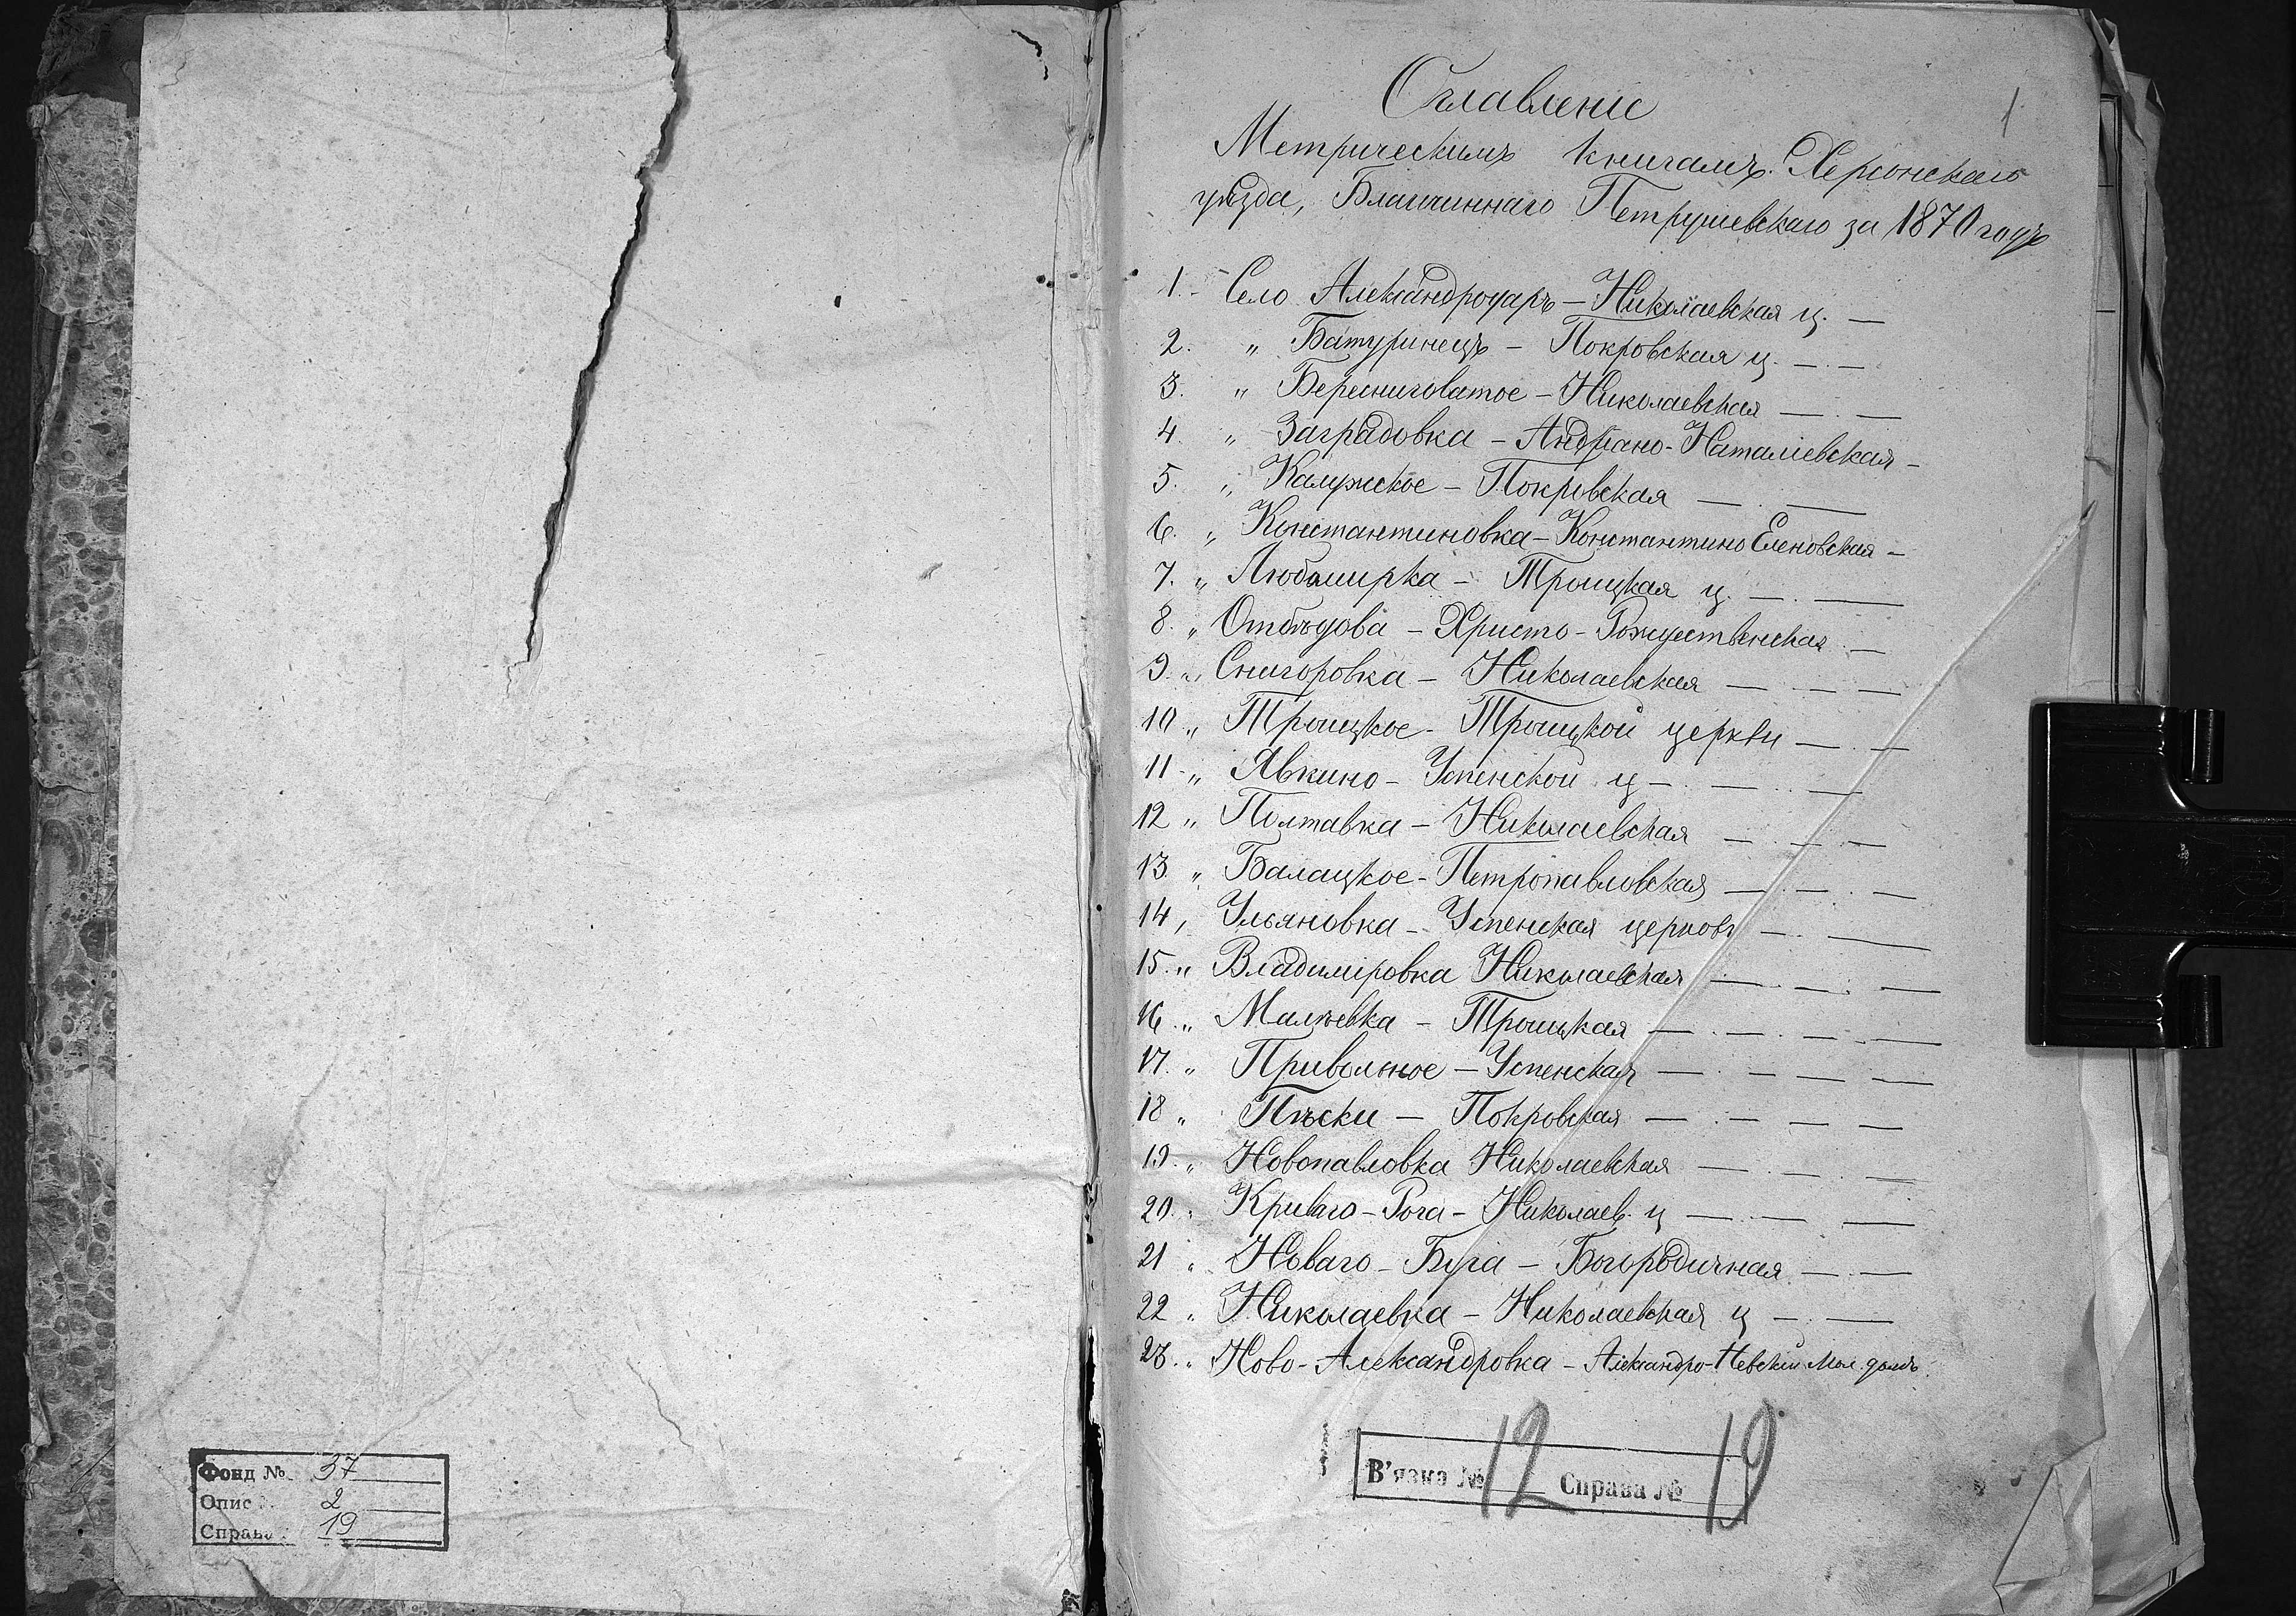 Фонд № 37
Опис 2
Справа 19
1
Оглавленіе
Метрическимъ книгамъ Херсонскаго
уѣзда, Благочиннаго Петрушевскаго за 1870 годъ
1. Село Александродаръ – Николаевская ц. —
2. „ Батуринецъ – Покровская ц. — —
3. „ Бересниговатое – Николаевская — —
4. „ Заградовка – Андріано-Наталіевская –
5. „ Калужское – Покровская — —
6. „ Константиновка – Константино Еленовская –
7. „ Любомирка – Троицкая ц. — —
8. „ Отбѣдова – Христо-Рождественская —
9. „ Снигоровка – Николаевская — — —
10 „ Троицкое – Троицкой церкви — —
11 „ Явкино – Успенской ц — — —
12 „ Полтавка – Николаевская — — —
13. „ Балацкое – Петропавловская — — —
14 „ Ульяновка – Успенская церковь — —
15. „ Владиміровка Николаевская — — —
16. „ Малѣевка – Троицкая — — — —
17. „ Привольное – Успенская — — — —
18 „ Пѣски – Покровская — — — —
19. „ Новопавловка Николаевская — — —
20. „ Криваго-Рога – Николаев. ц — — —
21 „ Новаго-Буга – Богородичная — —
22 „ Николаевка – Николаевская ц — —
23. „ Ново-Александровка – Александро-Невскій Мол. домъ.
В'язка № 12 Справа № 19